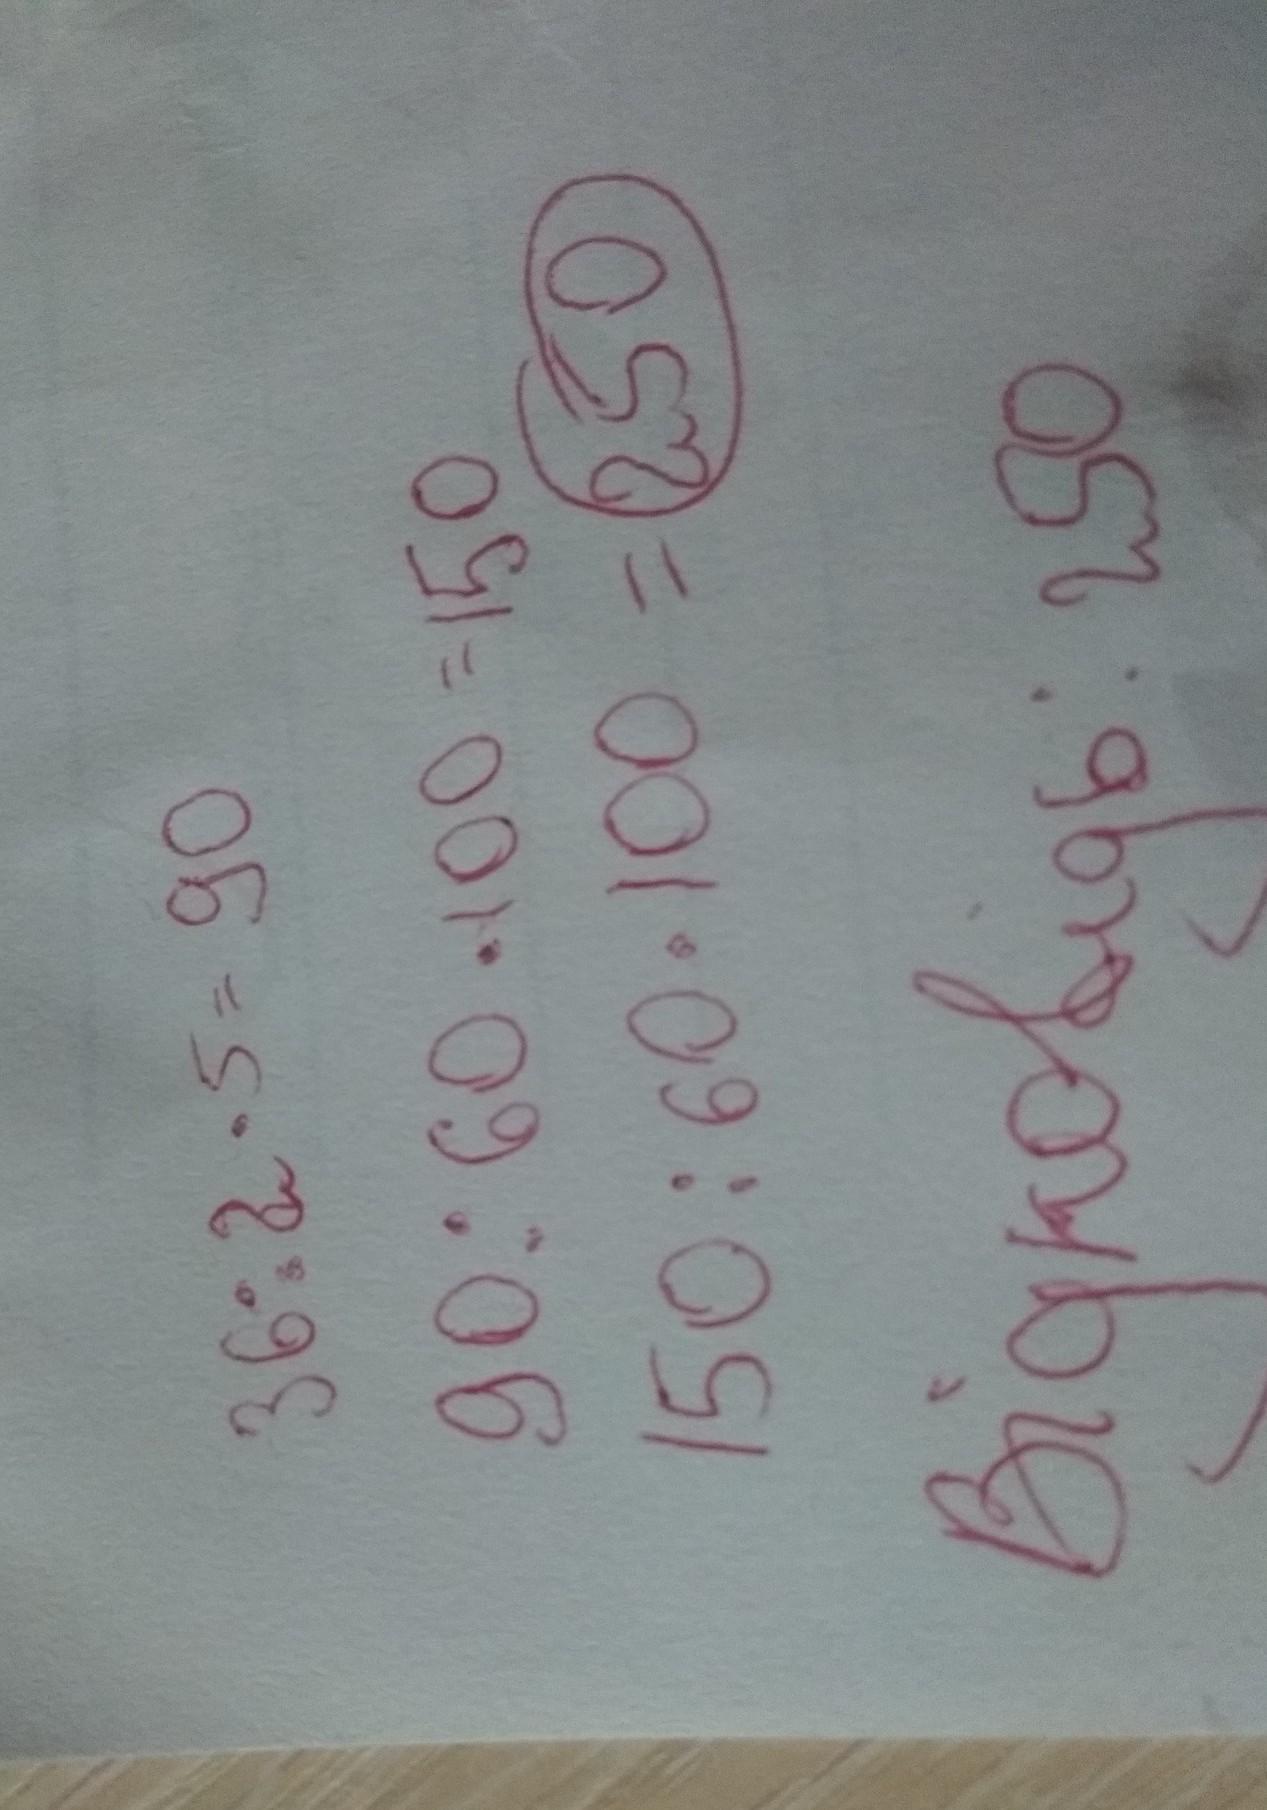 36:2·5=90
90:60·100=150
150:60·100=250
Відповідь: 250